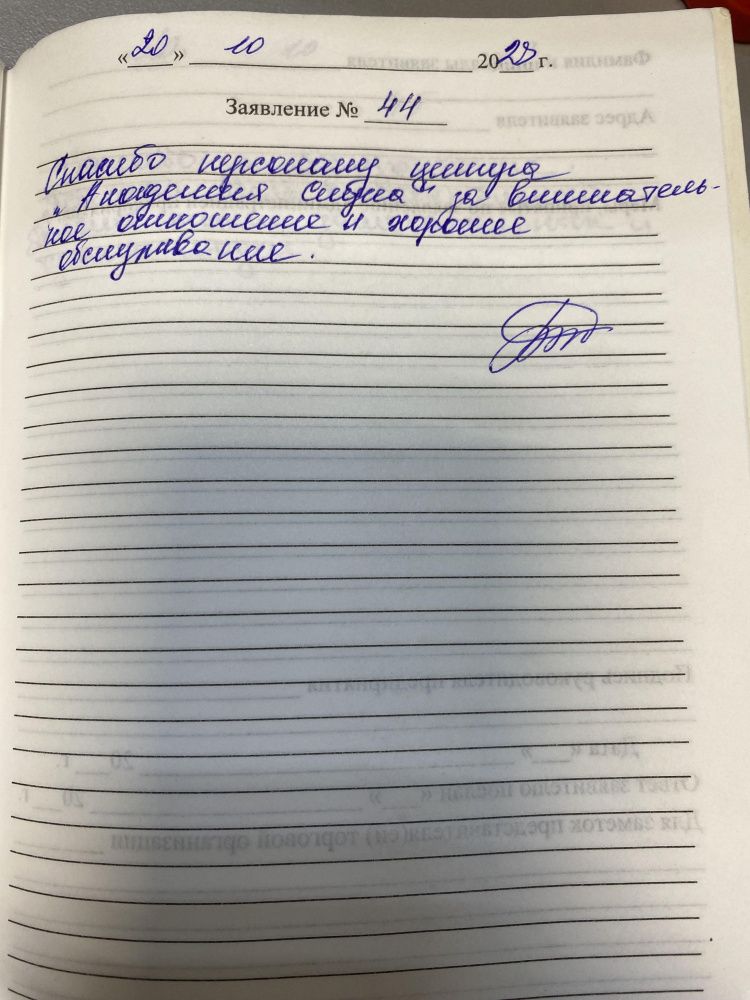 «20» 10 2023 г.
Заявление № 44
Спасибо персоналу центра
„Академия слуха" за вниматель-
ное отношение и хорошее
обслуживание.